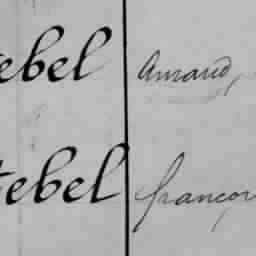 ebel Arnaud,
ebel françois